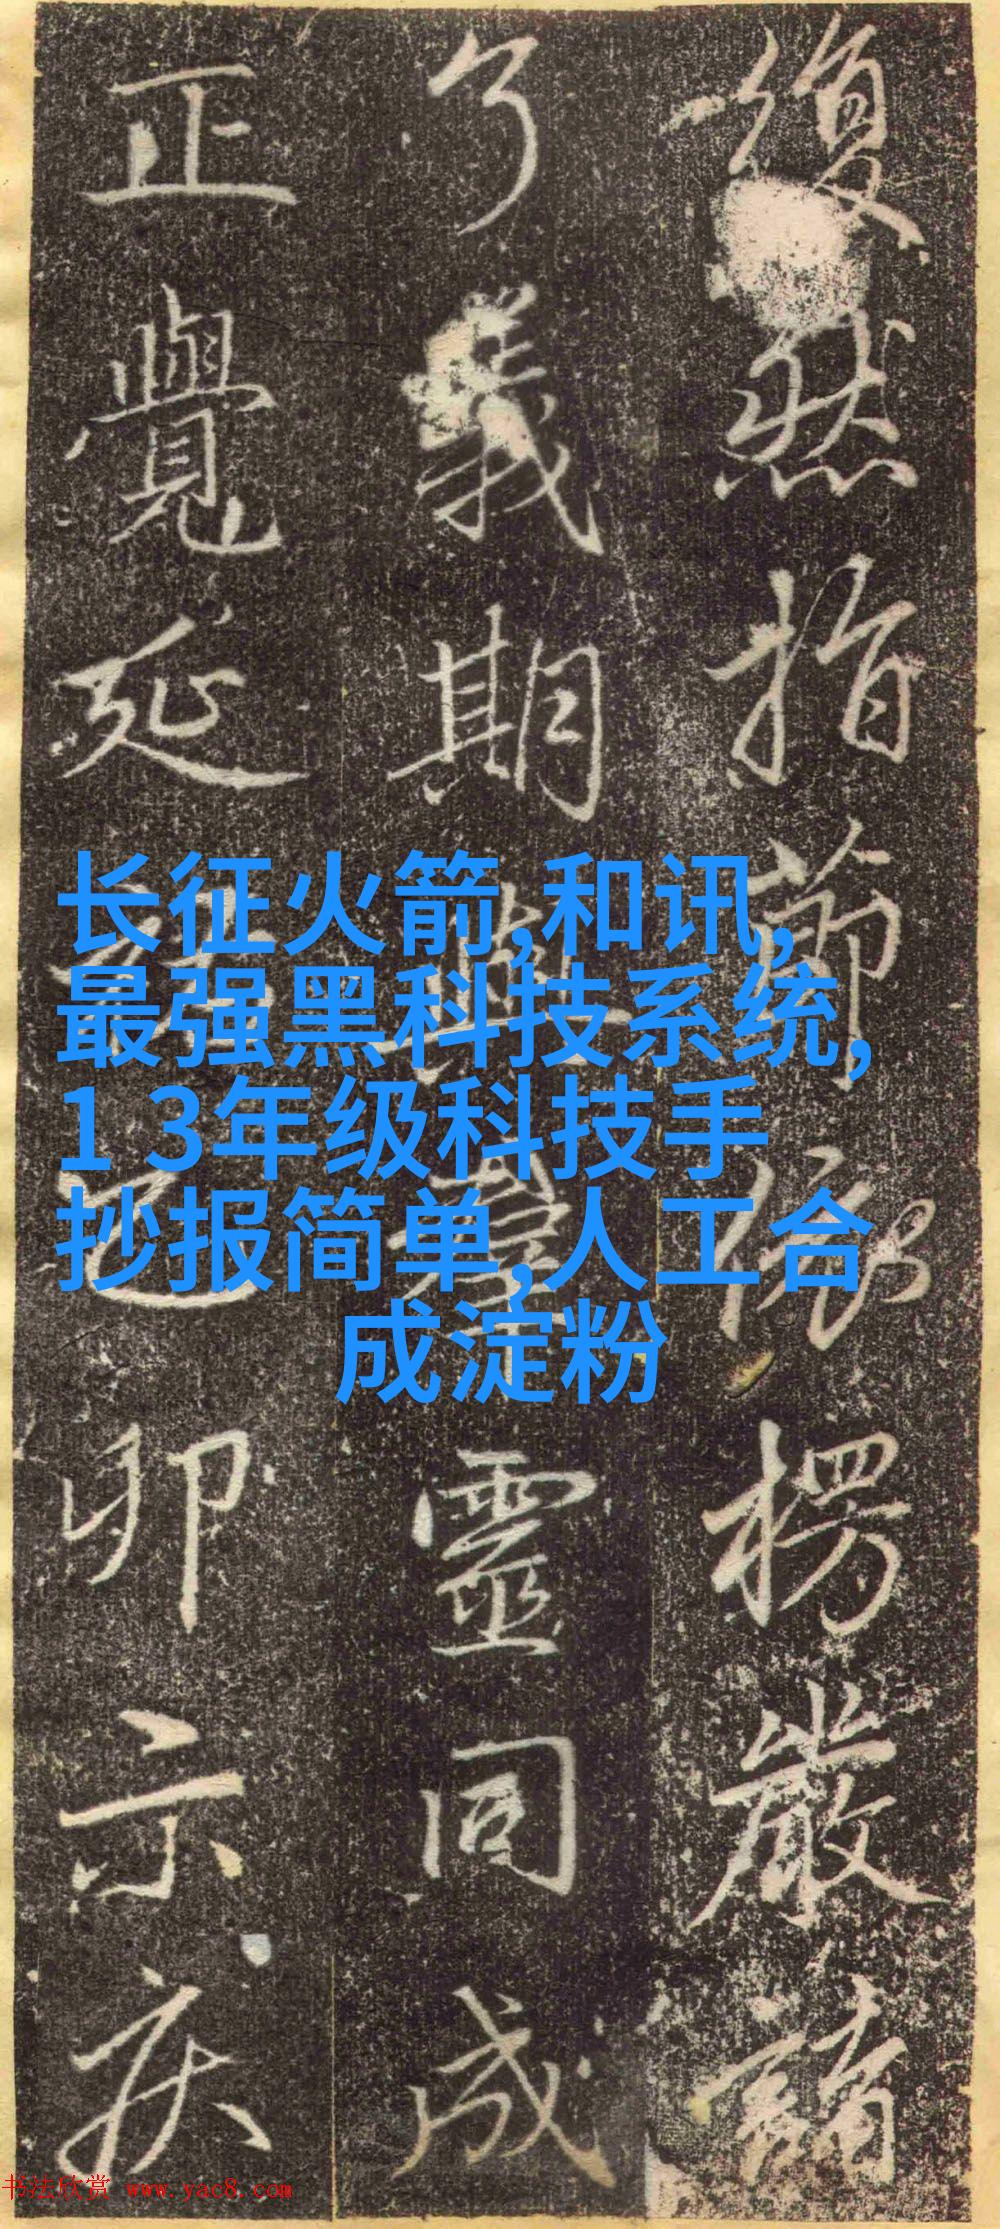 復然指節楞嚴
了義期與羣靈同成
正覺延卯示疾
长征火箭,和讯,
最强黑科技系统,
1 3年级科技手
抄报简单,人工合
成淀粉
书法欣赏 www.yac8.com